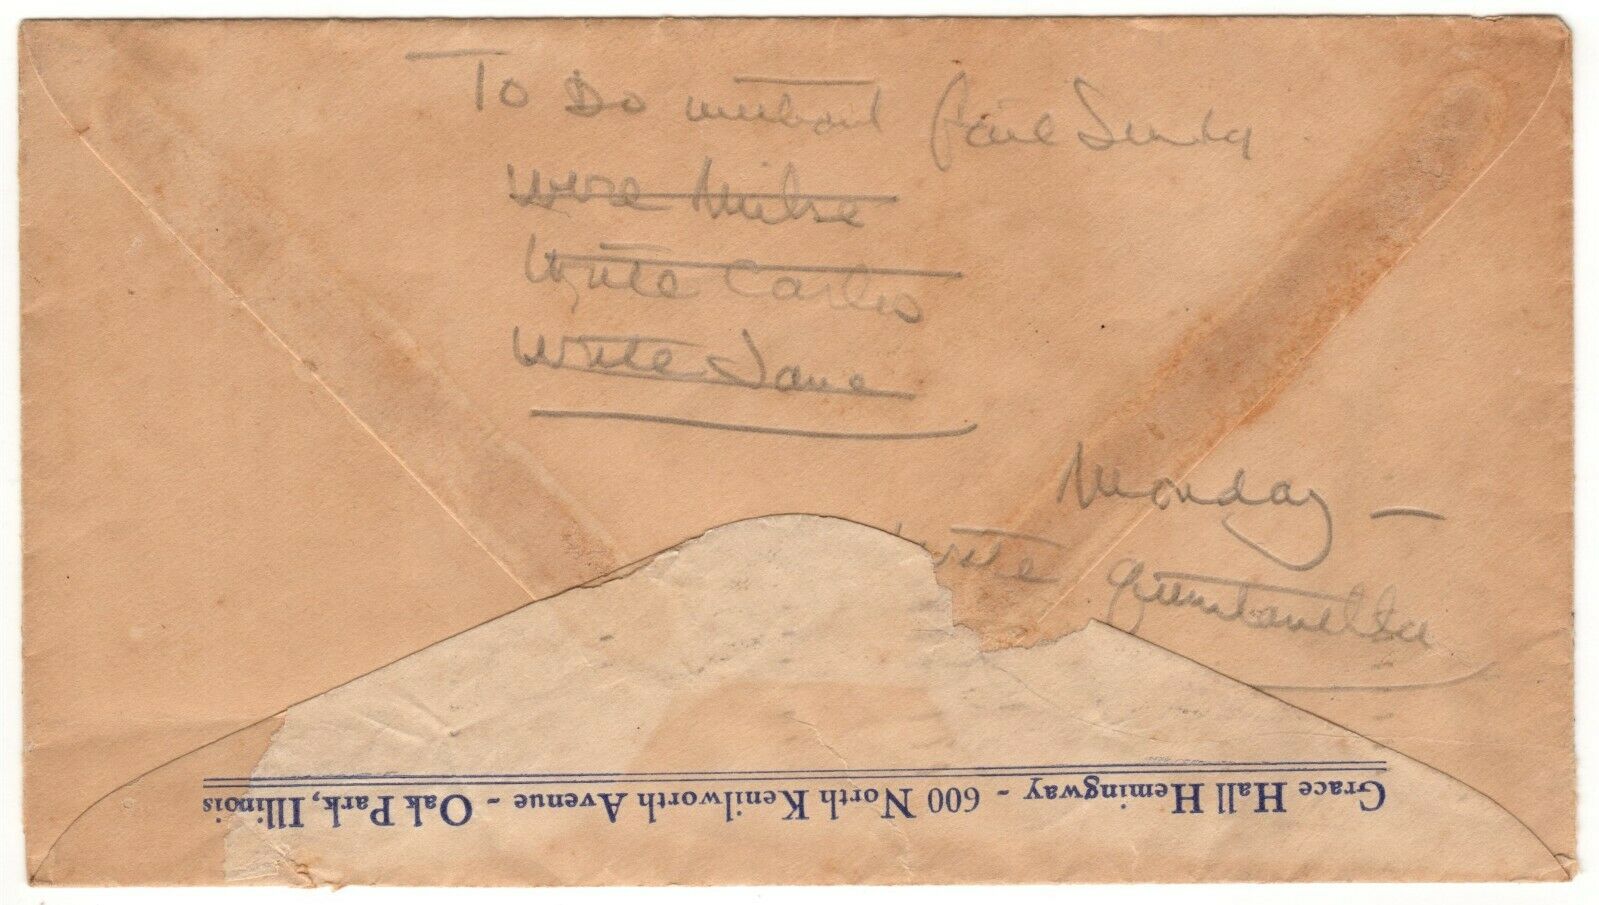 To Do without fail Sunday
Wire Mike
Write Carlos
Write Jane
Monday —
Write
Grace Hall Hemingway - 600 North Kenilworth Avenue - Oak Park, Illinois